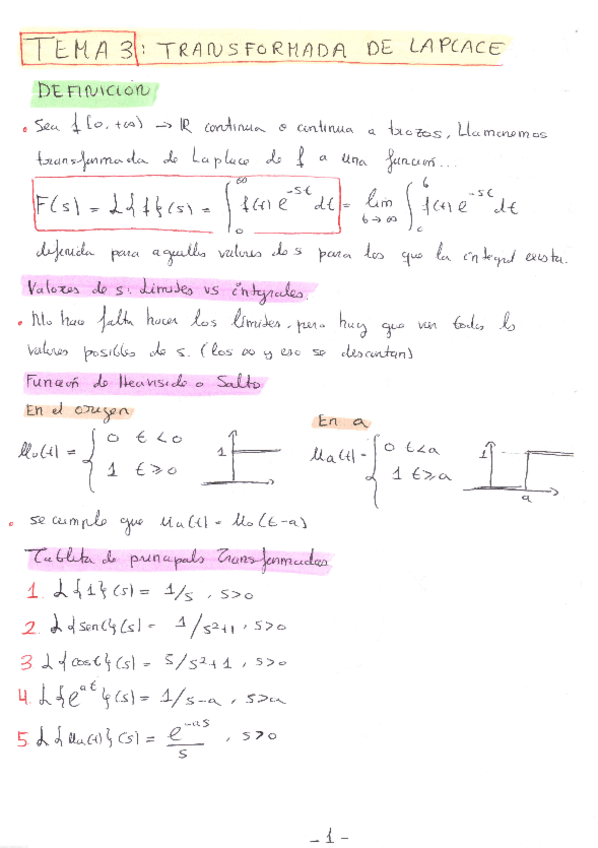 TEMA 3: TRANSFORMADA DE LAPLACE
DEFINICIÓN
• Sea f[0, +∞) → ℝ continua o continua a trozos, llamaremos
transformada de Laplace de f a una función...
F(s) = L{f}(s) = ∫₀^∞ f(t) e^(-st) dt = lim b→∞ ∫₀^b f(t) e^(-st) dt
definida para aquellos valores de s para los que la integral exista.
Valores de s: Límites vs integrales.
• No hace falta hacer los límites, pero hay que ver todos los
valores posibles de s. (los ∞ y eso se descartan)
Función de Heaviside o Salto
En el origen
μ₀(t) = { 0 t<0
1 t≥0
1
En a
μa(t) = { 0 t<a
1 t≥a
1
a
• se cumple que μa(t) = μ₀(t-a)
Tablita de principales transformadas
1. L{1}(s) = 1/s , s>0
2. L{sent}(s) = 1/s²+1 , s>0
3 L{cost}(s) = s/s²+1 , s>0
4. L{e^(at)}(s) = 1/s-a , s>a
5. L{μa(t)}(s) = e^(-as)/s , s>0
- 1 -